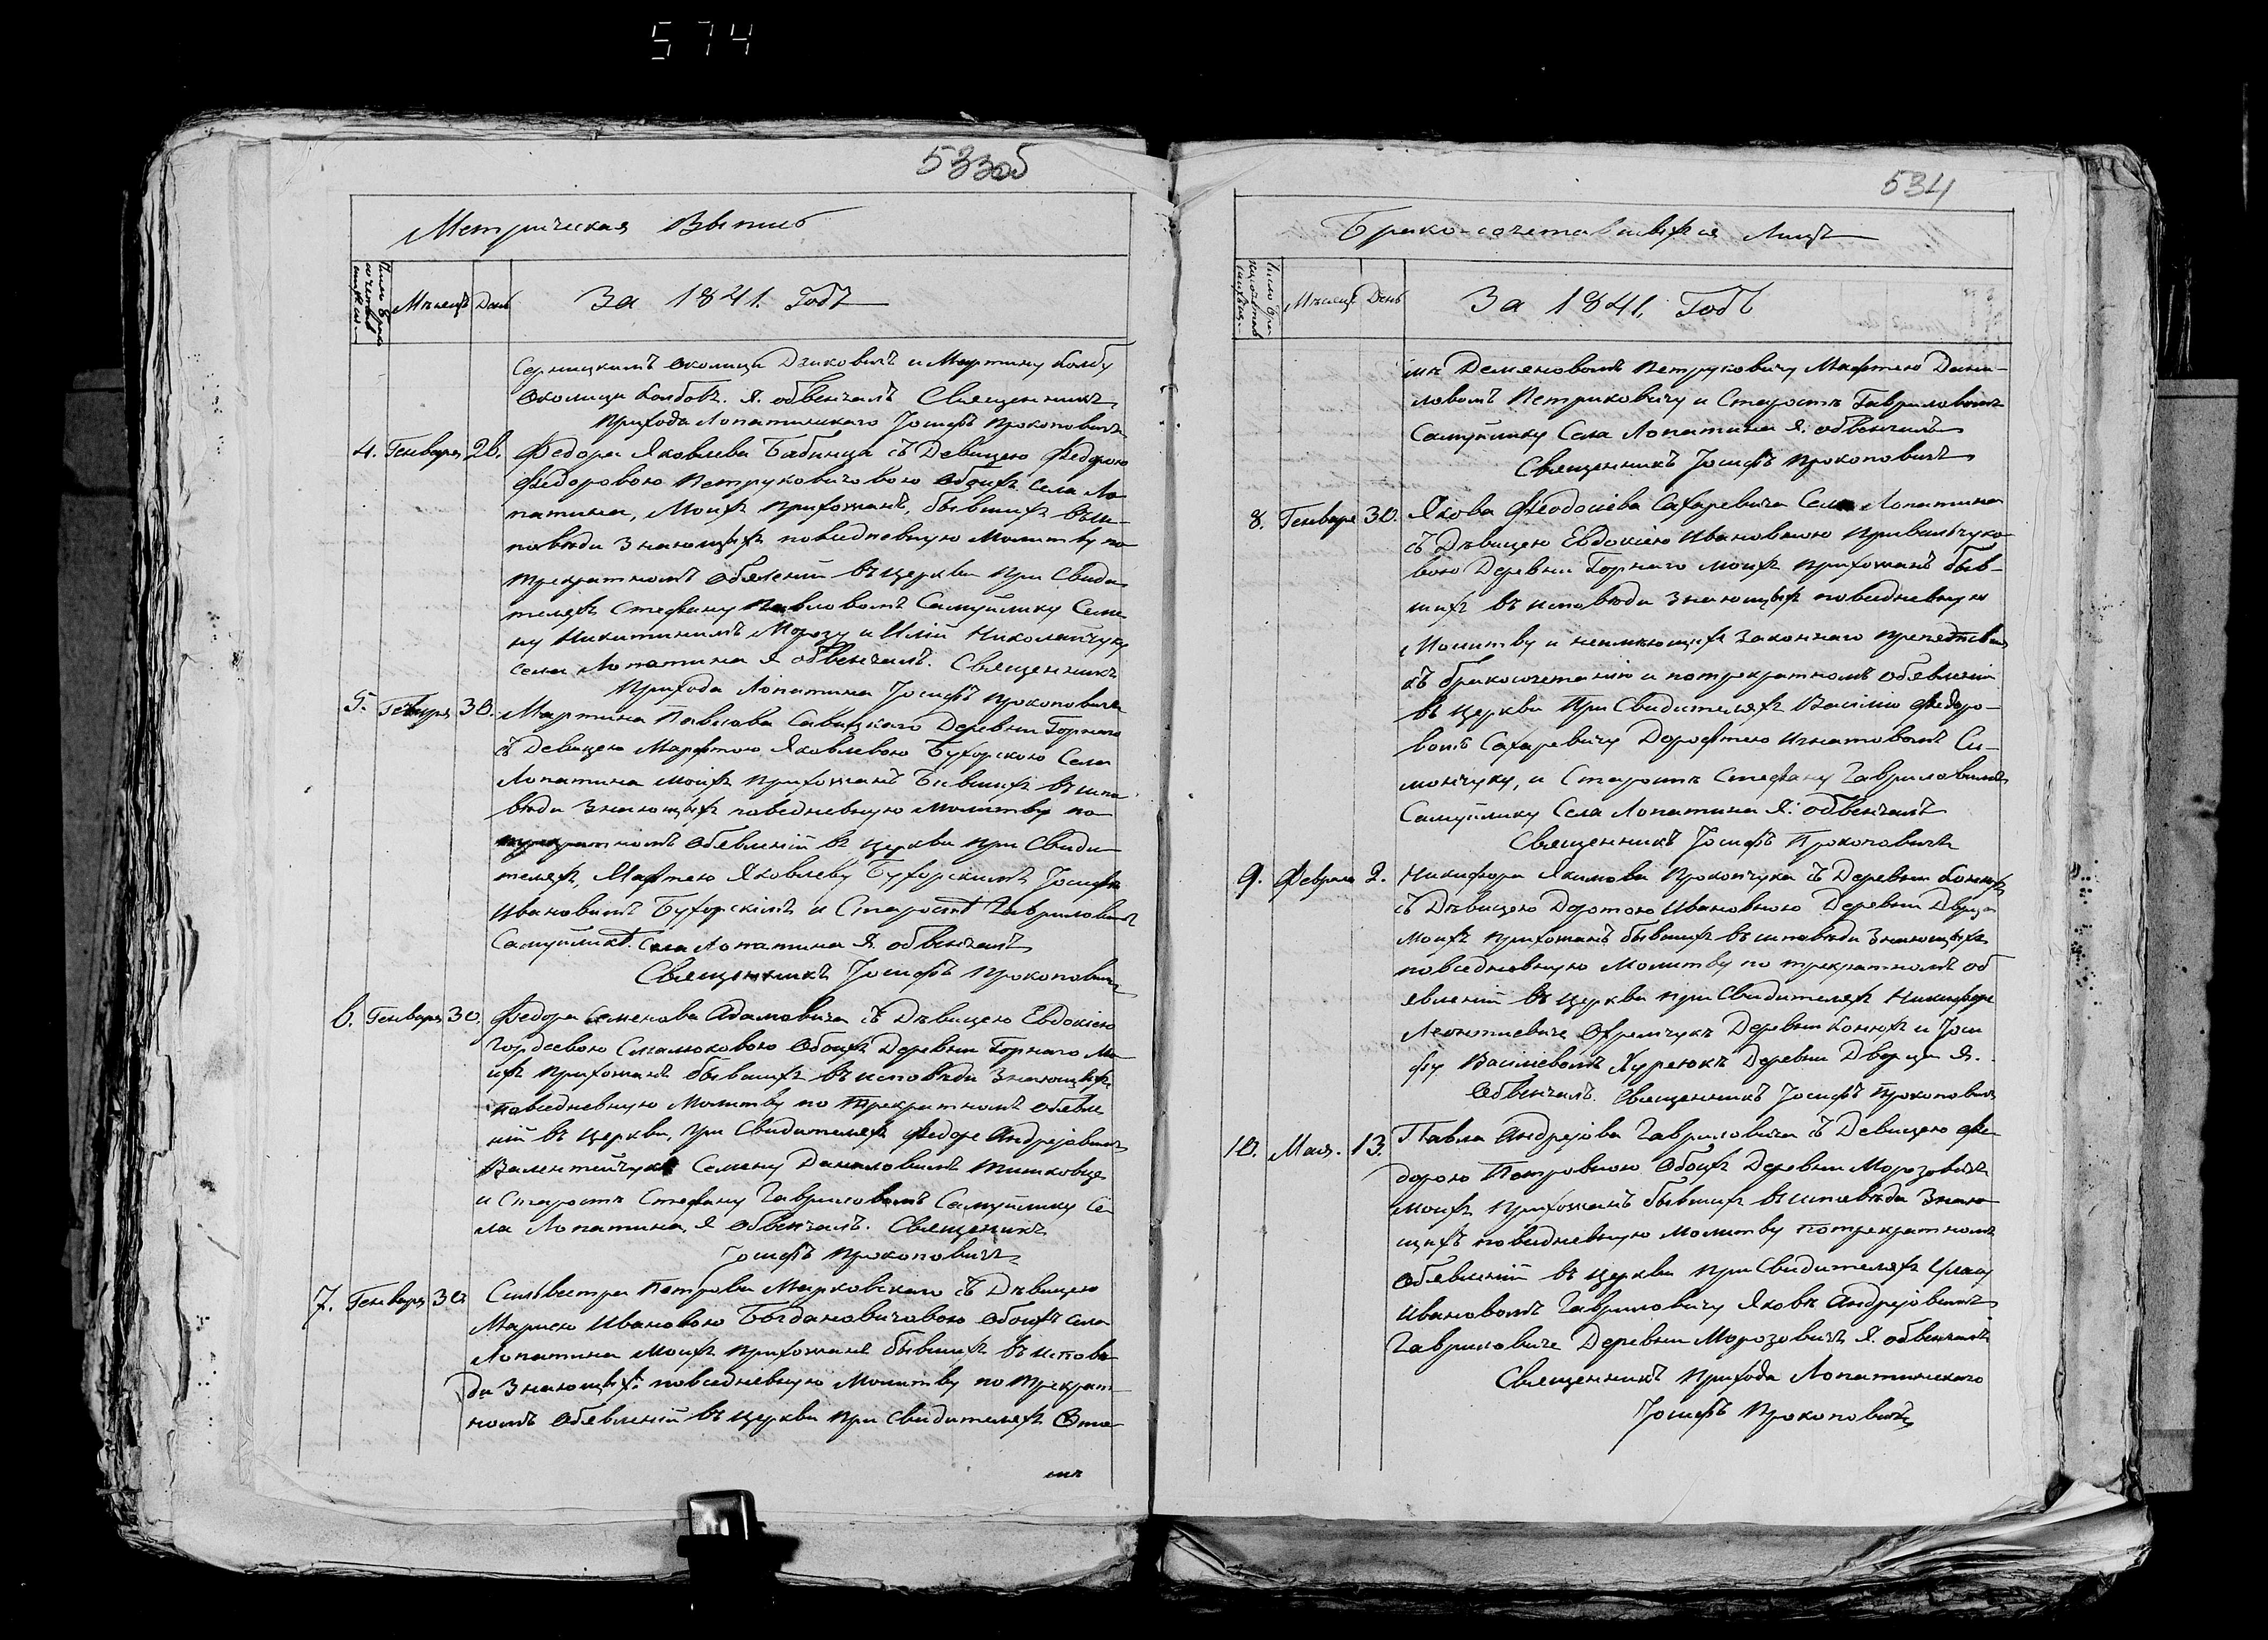 574
533об
Метрическая Выпись
Число Брако сочетав шихся
Мѣсяцъ День
За 1841. Годъ
Серницкимъ околицы Дзиковичъ и Мартину Колбу
Околицы Колбовъ. Я. обвенчалъ Священникъ
Прихода Лопатинскаго Іосифъ Прокоповичъ
4. Генваря 26. Федора Яковлева Бабинца съ Девицею Федорою
Федоровою Петруковичовою Обоихъ села Ло-
патина, Моихъ прихожанъ, бывшихъ въ ис-
поведи Знающихъ повседневную Молитву по
трекратномъ обявленій въ церкви при Свиде
телехъ Стефану Павловомъ Самуйлику Семе
ну Никитинимъ Морозу и Иліи Николайчуку
села Лопатина я обвенчалъ. Священникъ
Прихода Лопатина Іосифъ Прокоповичъ
5. Генваря 30. Мартина Павлова Савицкого Деревни Горнаго
съ Девицею Марфтою Яковлевою Бухорскою Села
Лопатина моихъ прихожанъ Бившихъ въ испо
вѣди Знающихъ повседневную Молитву по
трекратномъ обявленій въ церкви при Свиди
телехъ, Мафтею Яковлеву Бухорскимъ Іосифъ
Ивановимъ Бухорскімъ и Старостѣ Гавриловимъ
Самуйликѣ. Села Лопатина Я. обвенчалъ
Священникъ Іосифъ Прокоповичъ
6. Генваря 30. Федора Семенова Адамовича съ Дѣвицею Евдокіею
Гордеевою Смалюковою Обоихъ Деревни Горнаго Мо
ихъ прихожанъ бывшихъ въ исповѣди Знающихъ
повседневную Молитву по трекратномъ обявле
ній въ церкви, при Свидителехъ Федоре Андреjовимъ
Валентейчуку Семену Даниловимъ Тишковцу
и Старостѣ Стефану Гавриловомъ Самуйлику Се
ла Лопатина, Я обвенчалъ. Священикъ
Іосифъ Прокоповичъ
7. Генваря 30 Сильвестра Петрова Марковского съ Дѣвицею
Мариею Ивановою Богдановичовою обоихъ села
Лопатина моихъ прихожанъ бывшихъ въ испове
ди Знающихъ повседневную Молитву по трекрат
номъ обявленій въ церкви при свидителехъ Ома-
534
Брако-сочетавшихся Лицъ
Число бра косочетав шихся.
Мѣсяцъ День
За 1841. Годъ
Демяновомъ Петруковичу Мафтею Дани-
ловомъ Петриковичу и Старостѣ Гавриловимъ
Самуйлику Села Лопатина я. обвенчалъ
Священникъ Іосифъ Прокоповичъ
8. Генваря 30. Якова Феодосіева Сахаревича Села Лопатина
съ Дѣвицею Евдокіею Ивановною Привальчуко
вою Деревни Горнаго моихъ прихожанъ быв-
шихъ въ исповѣди знающихъ повседневную
Молитву и неимѣющихъ Законнаго препятствія
къ бракосочетанію и потрекратномъ обявленій
въ церкви При Свидителехъ Василію Федоро-
вомъ Сахаревичу Дорофтею Игнатовомъ Си-
мончуку, и Старостѣ Стефану Гавриловимъ
Самуйлику Села Лопатина Я: обвенчалъ
Священникъ Іосифъ Прокоповичъ
9. Февраля 2. Никифора Якимова Прокопчука съ Деревни Конюхъ
съ Дѣвицею Доротою Ивановною Деревни Дворца
Моихъ прихожанъ бывшихъ въ исповѣди Знающихъ
повседневную Молитву по трекратномъ об
явленій въ церкви при Свидителехъ Никифоре
Леонтиевиче Офремчукъ Деревни Конюхъ и Іоси
фу Василевомъ Хурсюкъ Деревни Дворца Я.
Обвенчалъ. Священникъ Іосифъ Прокоповичъ
10. Мая. 13. Павла Андреjова Гавриловича съ Девицею Фе-
дорою Петровною Обоихъ Деревни Морозовичъ
моихъ прихожанъ бывшихъ въ исповѣди Знаю
щихъ повседневную молитву потрекратномъ
обявленій въ церкви при Свидителехъ
Ивановомъ Гавриловичу Яковъ Андреjовимъ
Гавриловиче Деревни Морозовичъ Я. обвенчалъ
Священникъ Прихода Лопатинскаго
Іосифъ Прокоповичъ